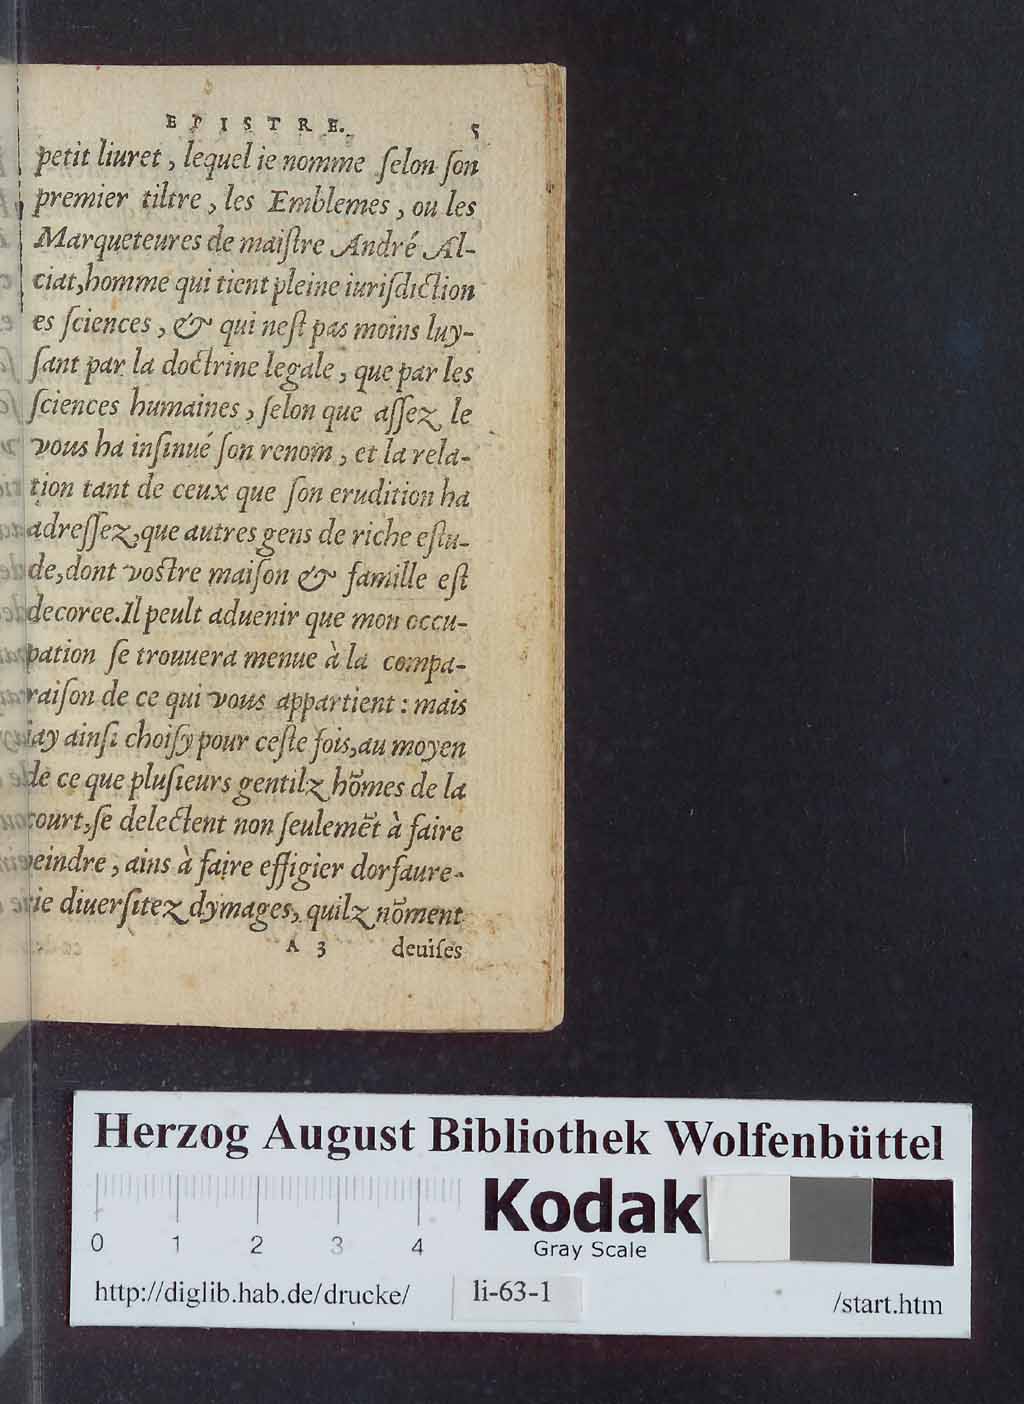 EPISTRE. 5
petit liuret, lequel ie nomme ſelon ſon
premier tiltre, les Emblemes, ou les
Marqueteures de maiſtre André Al-
ciat, homme qui tient pleine iuriſdiction
es ſciences, & qui neſt pas moins luy-
ſant par la doctrine legale, que par les
ſciences humaines, ſelon que aſſez le
vous ha inſinué ſon renom, et la rela-
tion tant de ceux que ſon erudition ha
adreſſez, que autres gens de riche eſtu-
de, dont voſtre maiſon & famille eſt
decoree. Il peult aduenir que mon occu-
pation ſe trouuera menue à la compa-
raiſon de ce qui vous appartient : mais
iay ainſi choiſy pour ceſte fois, au moyen
de ce que pluſieurs gentilz hõmes de la
court, ſe delectent non ſeulemẽt à faire
peindre, ains à faire effigier dorfaure-
rie diuerſitez dymages, quilz nõment
A 3 deuiſes
Herzog August Bibliothek Wolfenbüttel
0 1 2 3 4
Kodak
Gray Scale
http://diglib.hab.de/drucke/ li-63-1 /start.htm